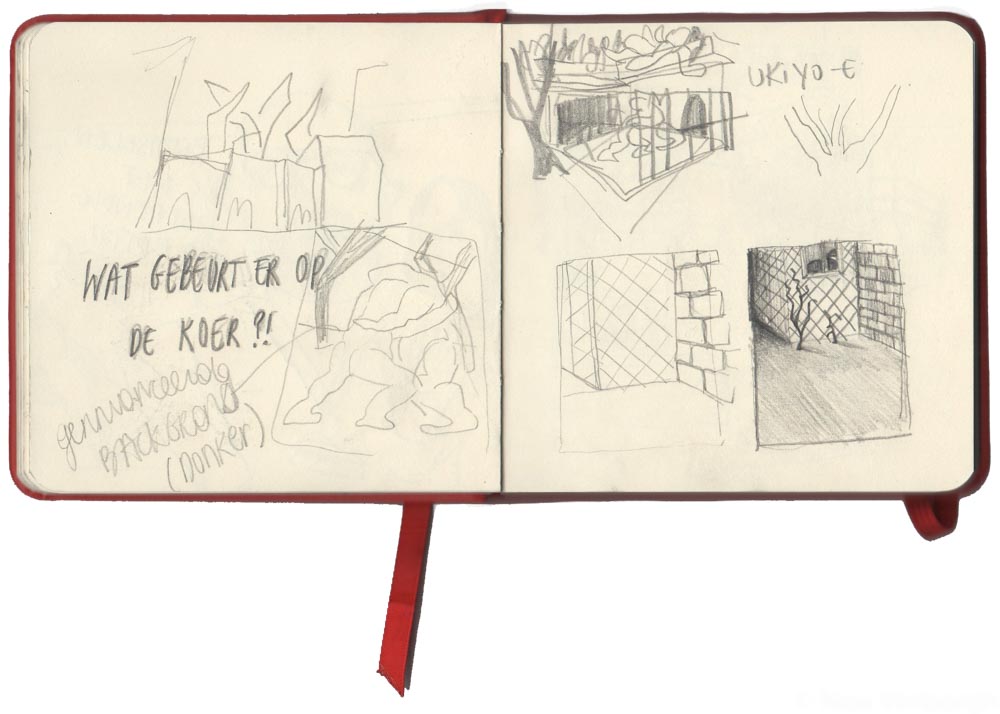 WAT GEBEURT ER OP
DE KOER ?!
genuanceerde
BACKGROND
(DONKER)
UKIYO-E